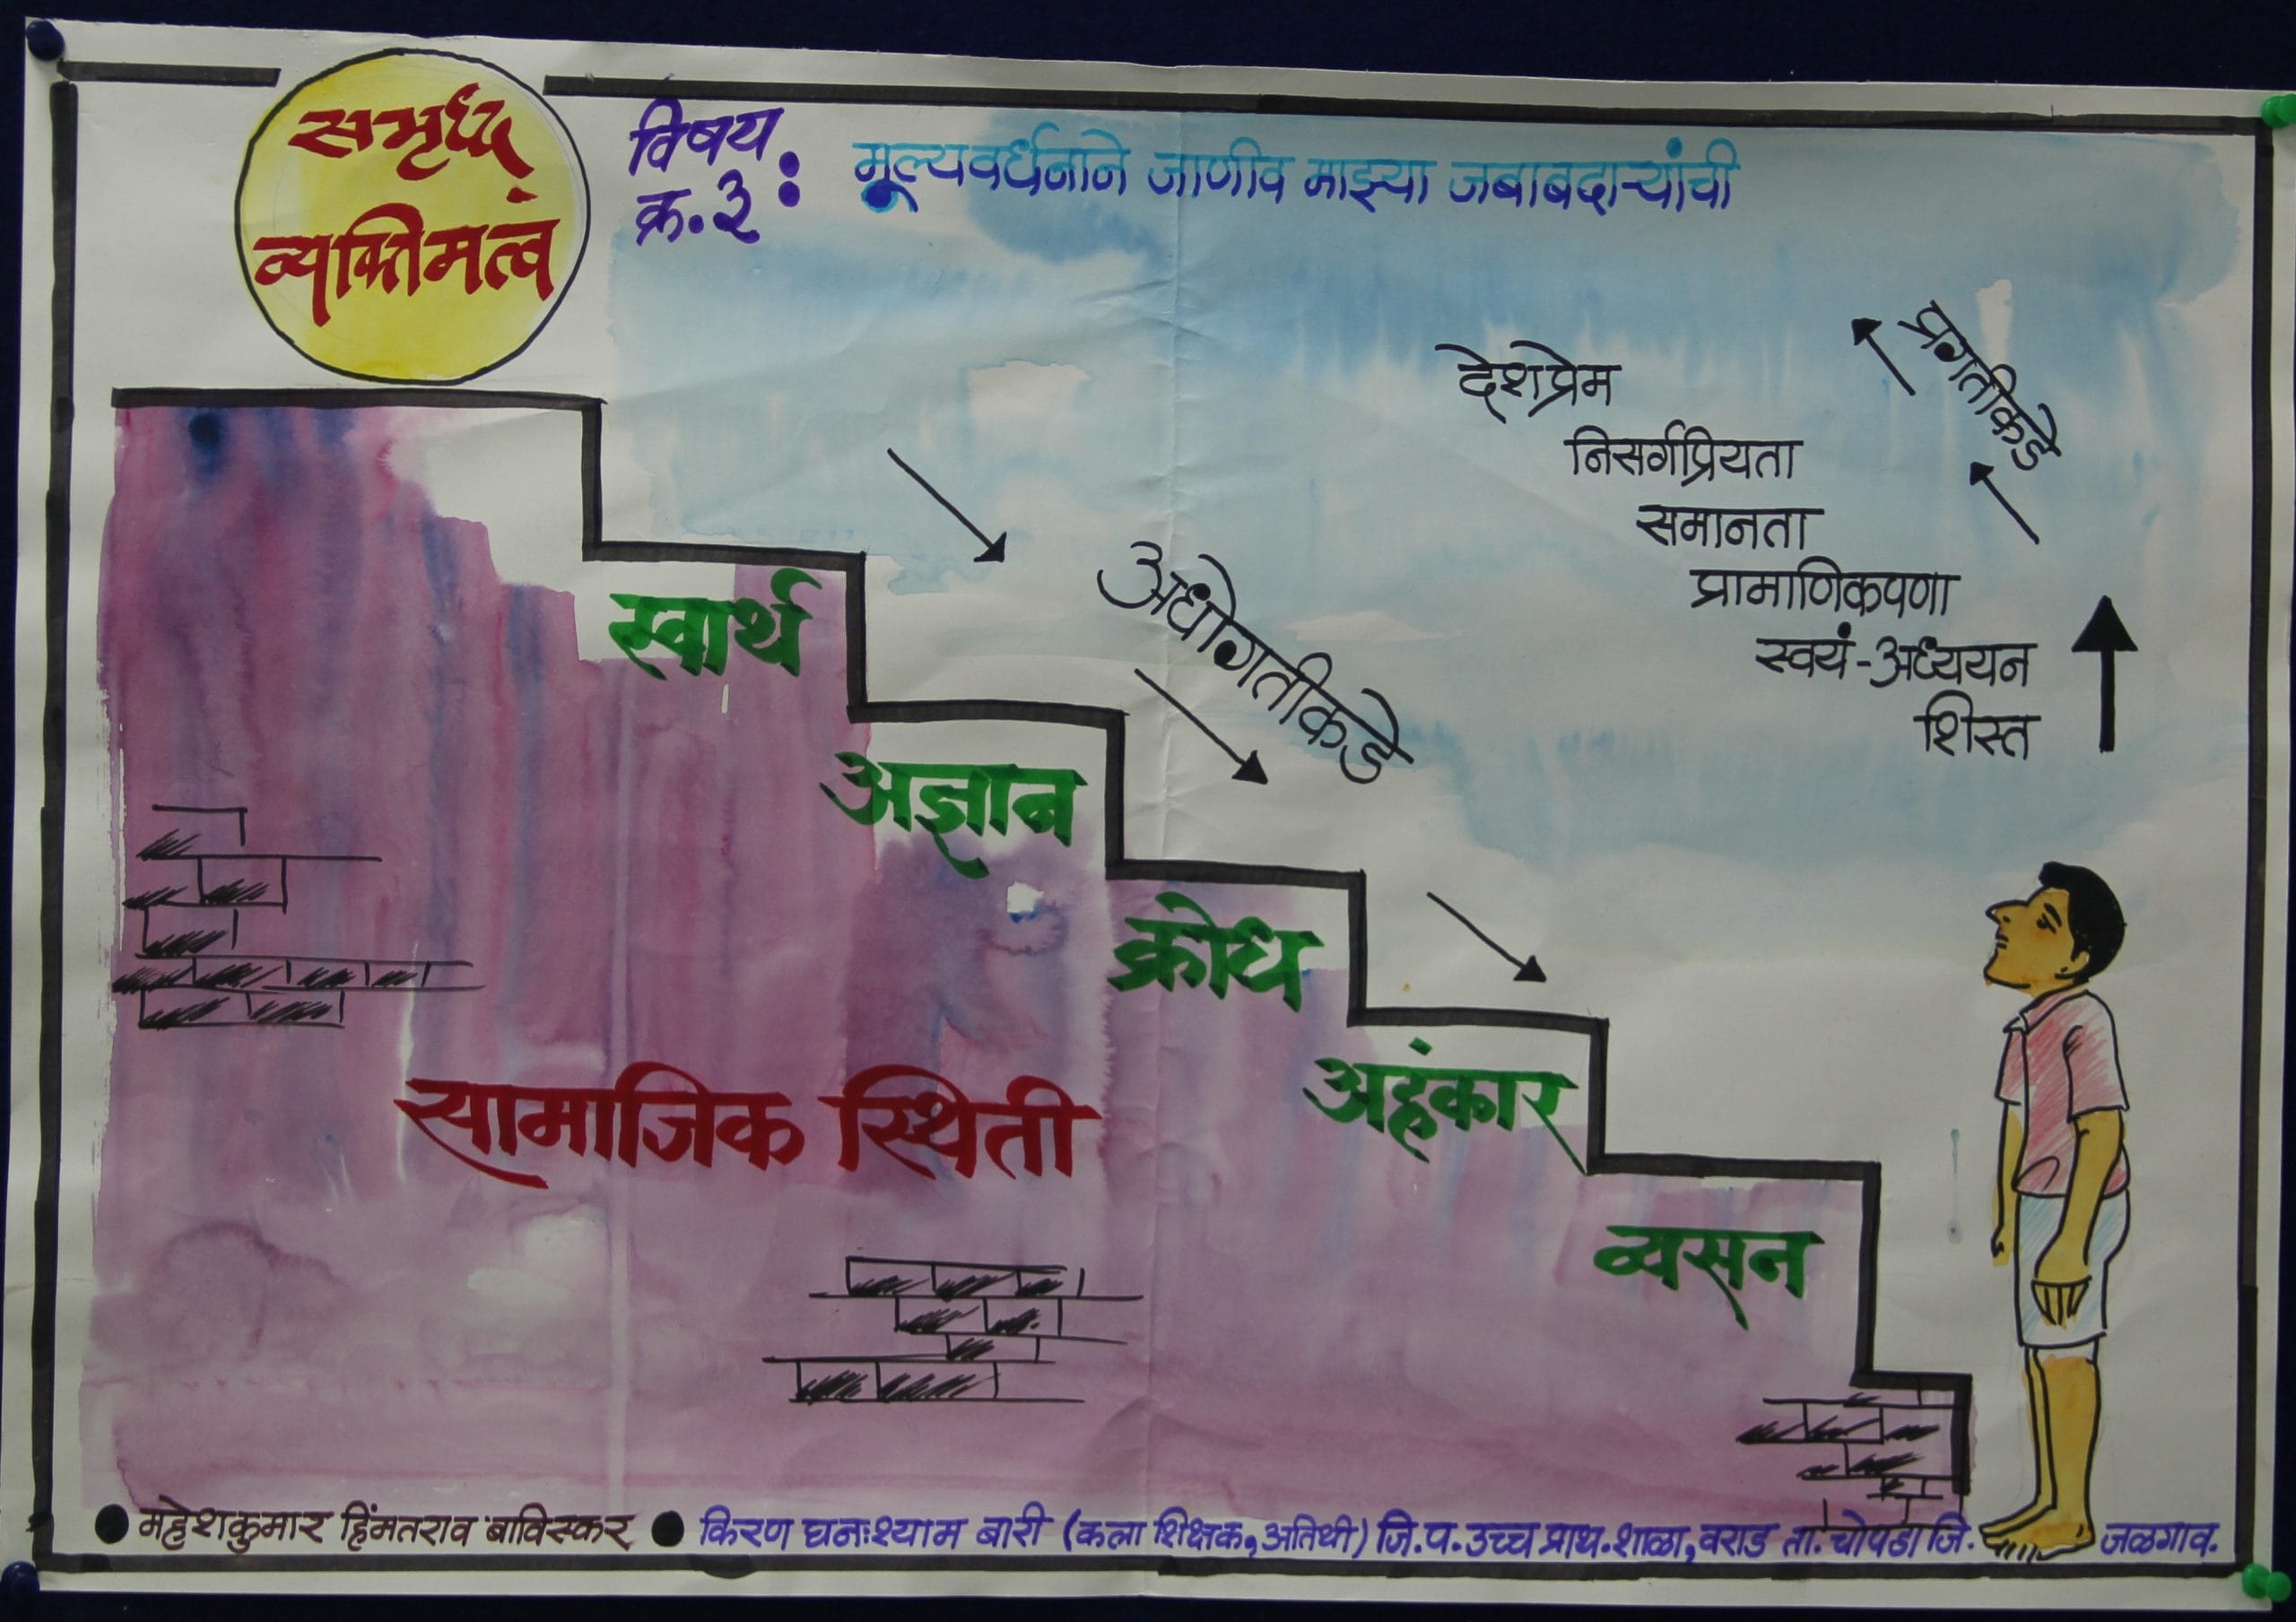 समृध्द
व्यक्तिमत्वं
विषय
क्र.३ :
मूल्यवर्धनाने जाणीव माझ्या जबाबदाऱ्यांची
प्रगतीकडे
देशप्रेम
निसर्गप्रियता
समानता
प्रामाणिकपणा
स्वयं-अध्ययन
शिस्त
अधोगतीकडे
स्वार्थ
अज्ञान
क्रोध
अहंकार
व्यसन
सामाजिक स्थिती
● महेशकुमार हिंमतराव बाविस्कर ● किरण घनःश्याम बारी (कला शिक्षक, अतिथी) जि.प. उच्च प्राथ. शाळा, वराड ता. चोपडा जि. जळगाव.